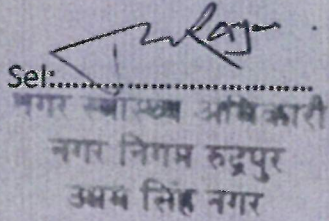 Sel:........................
नगर स्वास्थ्य अधिकारी
नगर निगम रुद्रपुर
उधम सिंह नगर